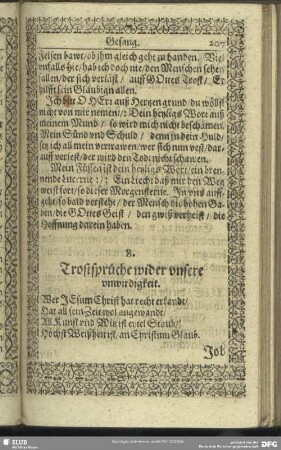 Gesang. 207
Felsen bawt / ob jhm gleich geht zu handen. Wie
wols hie / hab ich doch nie / den Menschen sehe
fallen / der sich verläst / auff GOttes Trost / Er
hilfft sein Gläubign allen.
Ich bitt O HErr auß Hertzen grund / du wöllst
nicht von mir nemen /: Dein heyligs Wort auß
meinem Mund / so wird mich nicht beschämen /
Mein Sünd vnd Schuld / denn in dein Huld /
setz ich all mein vertrawen / wer sich nun vest / dar-
auff verlest / der wird den Todt nicht schawen.
Mein Füssen ist dein heyligs Wort / ein bren-
nende Lucerne /: Ein Liecht daß mir den Weg
weist fort / so dieser Morgensterne. In vns auff-
geht / so bald versteht / der Mensch die hohen Ga-
ben / die GOttes Geist / den gwiß verheist / die
Hoffnung darein haben.
8.
Trostsprüche wider vnsere
vnwirdigkeit.
Wer JEsum Christ hat recht erkandt /
Hat all sein Zeit wol angewandt /
All Kunst vnd Witz ist eitel Staub /
Höchst Weißheit ist / an Christum Glaub.
Job
SLUB
DFG